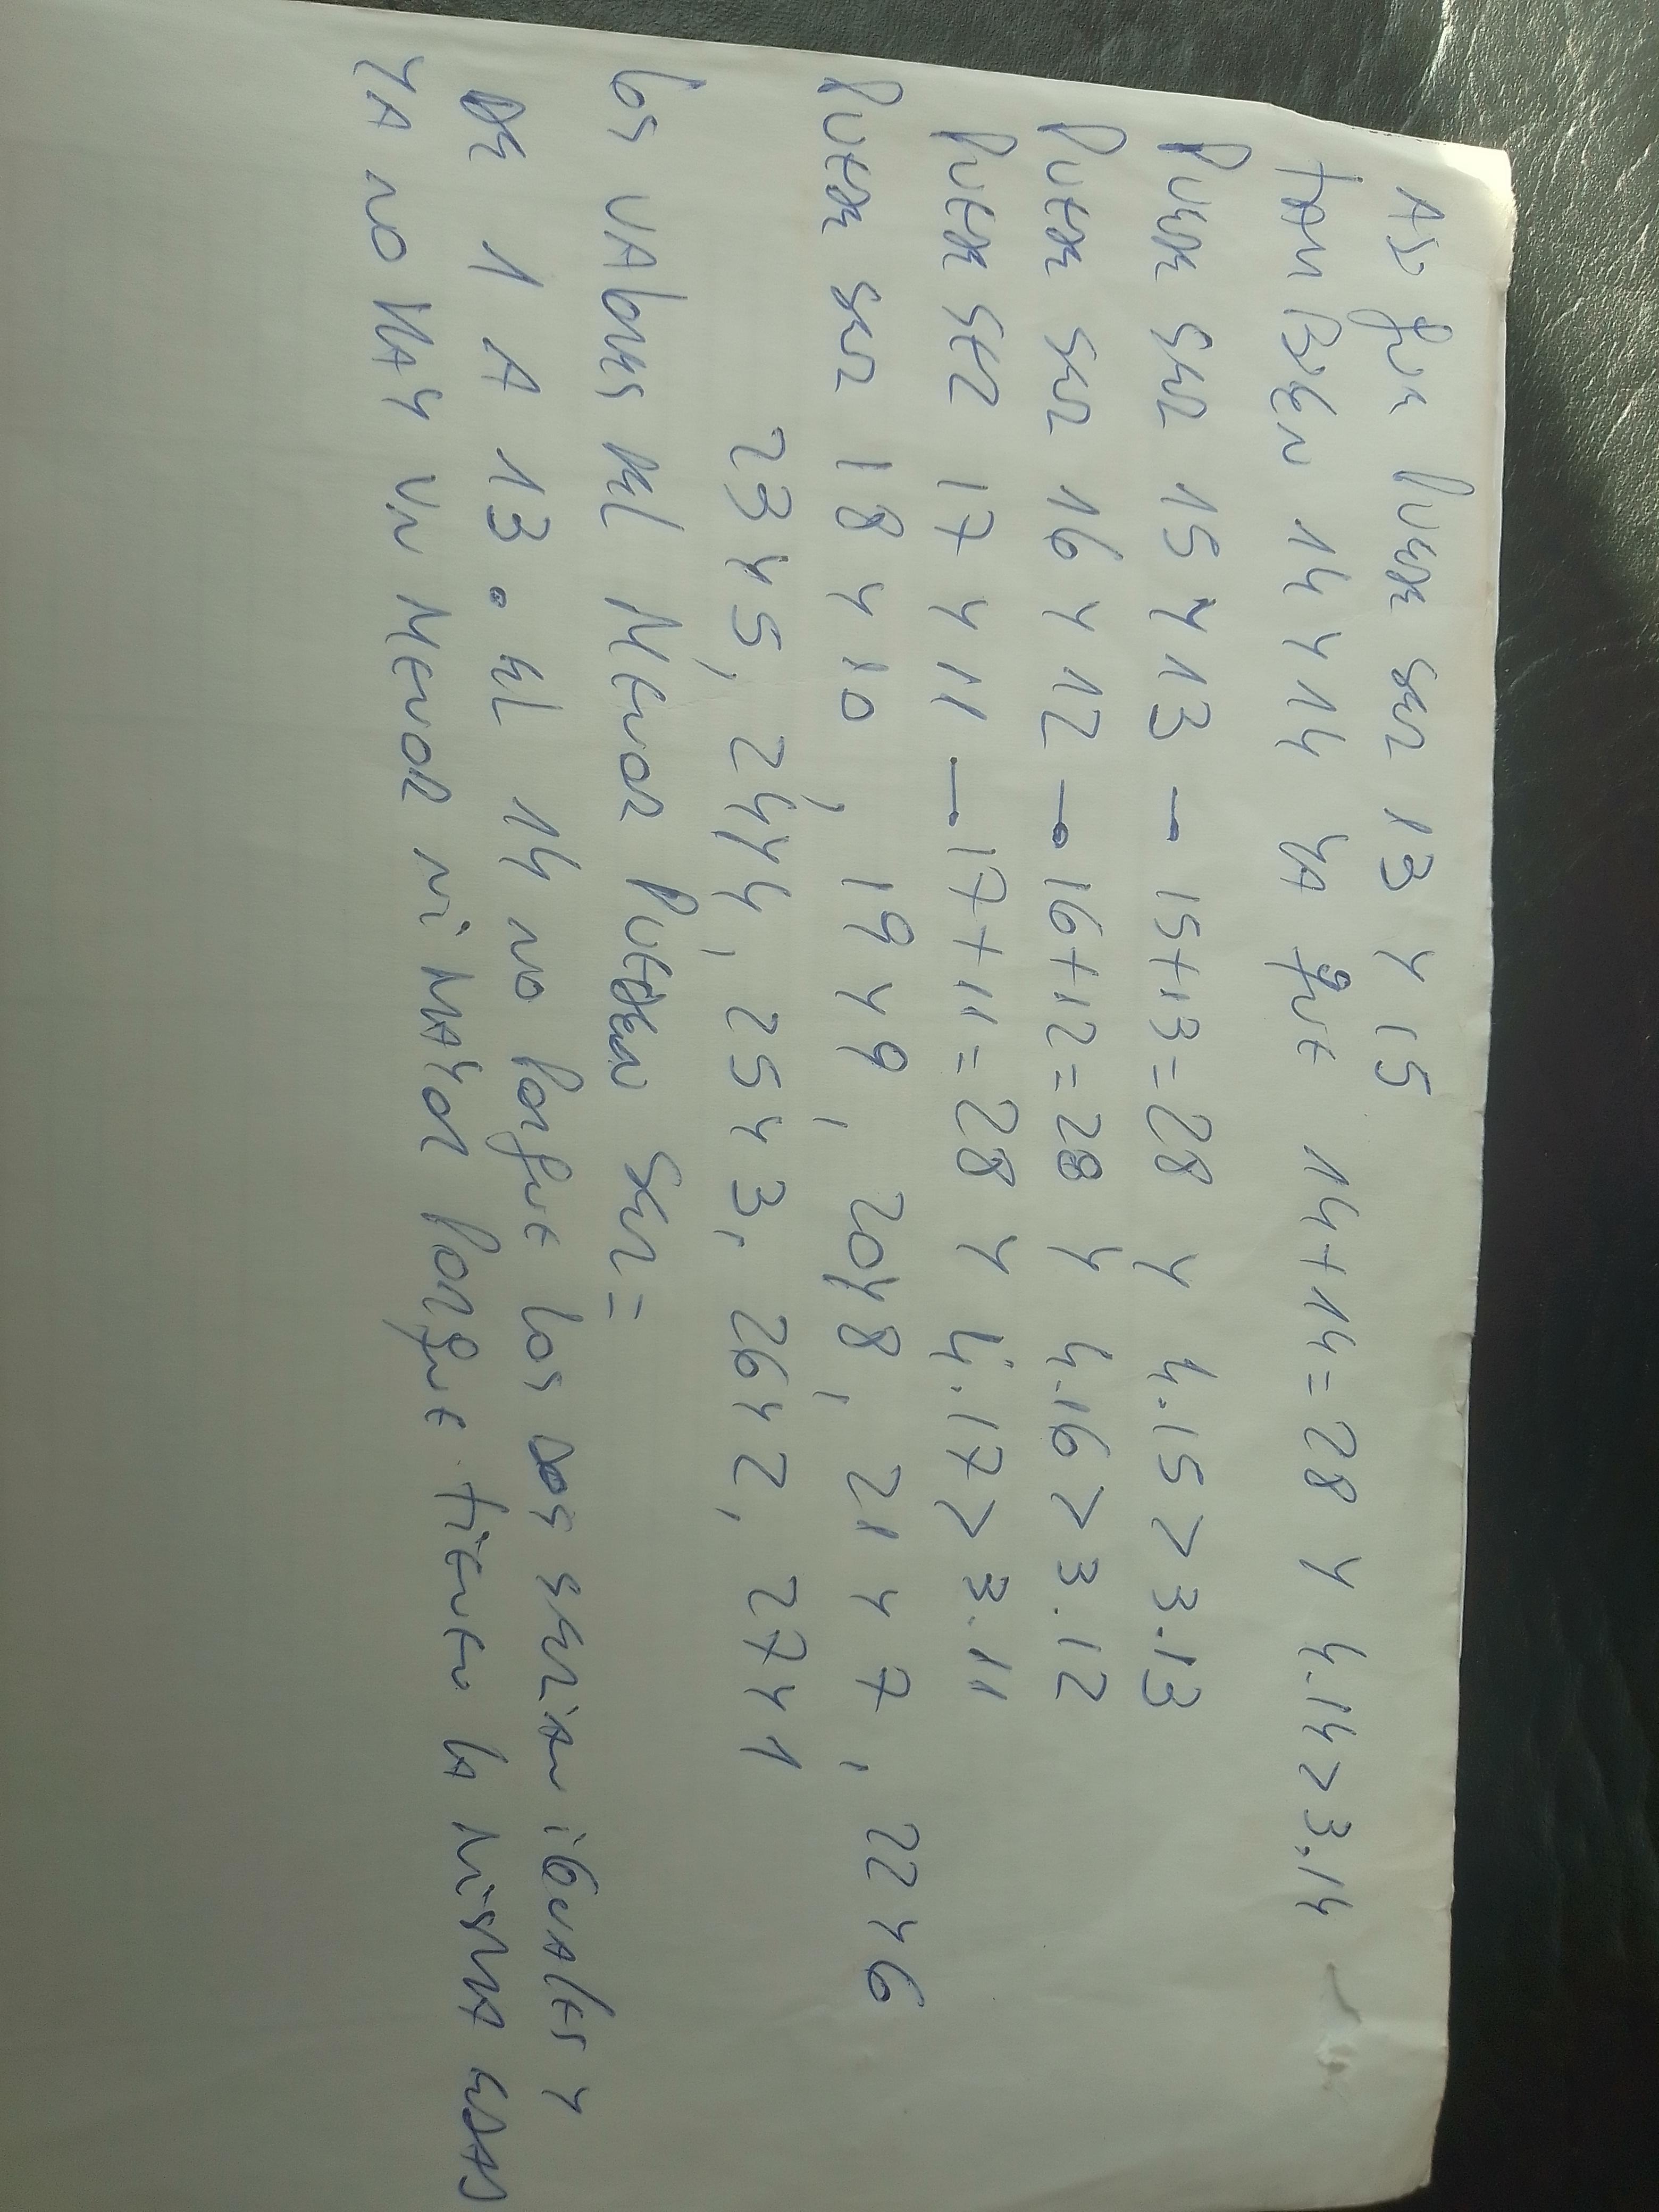 Asi que puede ser 13 y 15
tambien 14 y 14 ya que 14+14=28 y 4.14>3.14
Puede ser 15 y 13 → 15+13=28 y 4.15>3.13
Puede ser 16 y 12 → 16+12=28 y 4.16>3.12
Puede ser 17 y 11 → 17+11=28 y 4.17>3.11
Puede ser 18 y 10, 19 y 9, 20 y 8, 21 y 7, 22 y 6
23 y 5, 24 y 4, 25 y 3, 26 y 2, 27 y 1
los valores del menor pueden ser=
de 1 a 13. el 14 no porque los dos serian iguales y
ya no hay un menor ni mayor porque tienen la misma edad